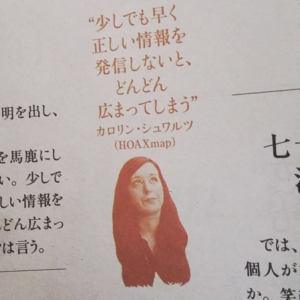 “少しでも早く
正しい情報を
発信しないと、
どんどん
広まってしまう”
カロリン・シュワルツ
(HOAXmap)
明を出し、
を馬鹿にし
い。少しで
しい情報を
どん広まっ
は言う。
七
では、
個人が
か。笑